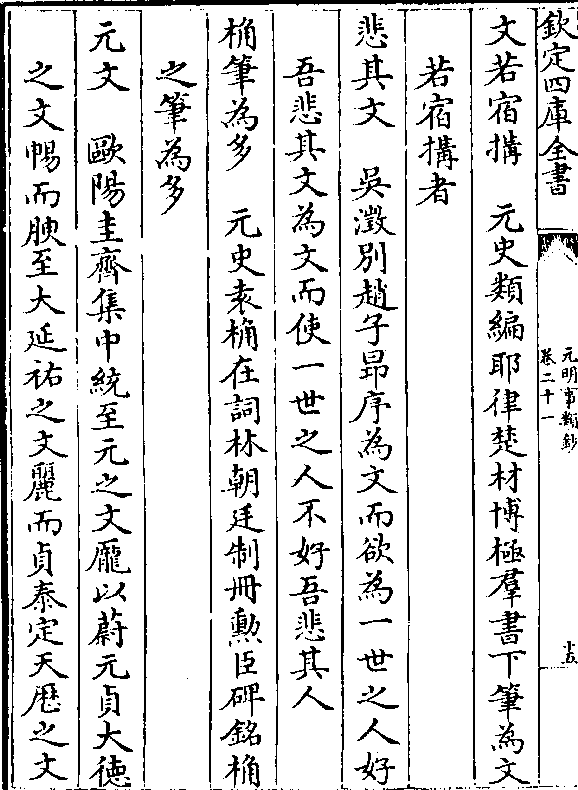 欽定四庫全書
元明事類鈔
卷二十一
十五
文若宿搆　元史類編耶律楚材博極羣書下筆為文
若宿搆者
悲其文　吳澂別趙子昻序為文而欲為一世之人好
吾悲其文為文而使一世之人不好吾悲其人
桷筆為多　元史袁桷在詞林朝廷制冊勲臣碑銘桷
之筆為多
元文　歐陽圭齋集中統至元之文龎以蔚元貞大徳
之文暢而腴至大延祐之文麗而貞泰定天厯之文